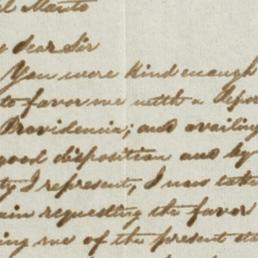 l Manto
dear Sir
You were kind enough
to favor me with a Repor
Providencia; and availin
good disposition and by
ty I represent, I now take
ain requesting the favor
ing me of the present sta